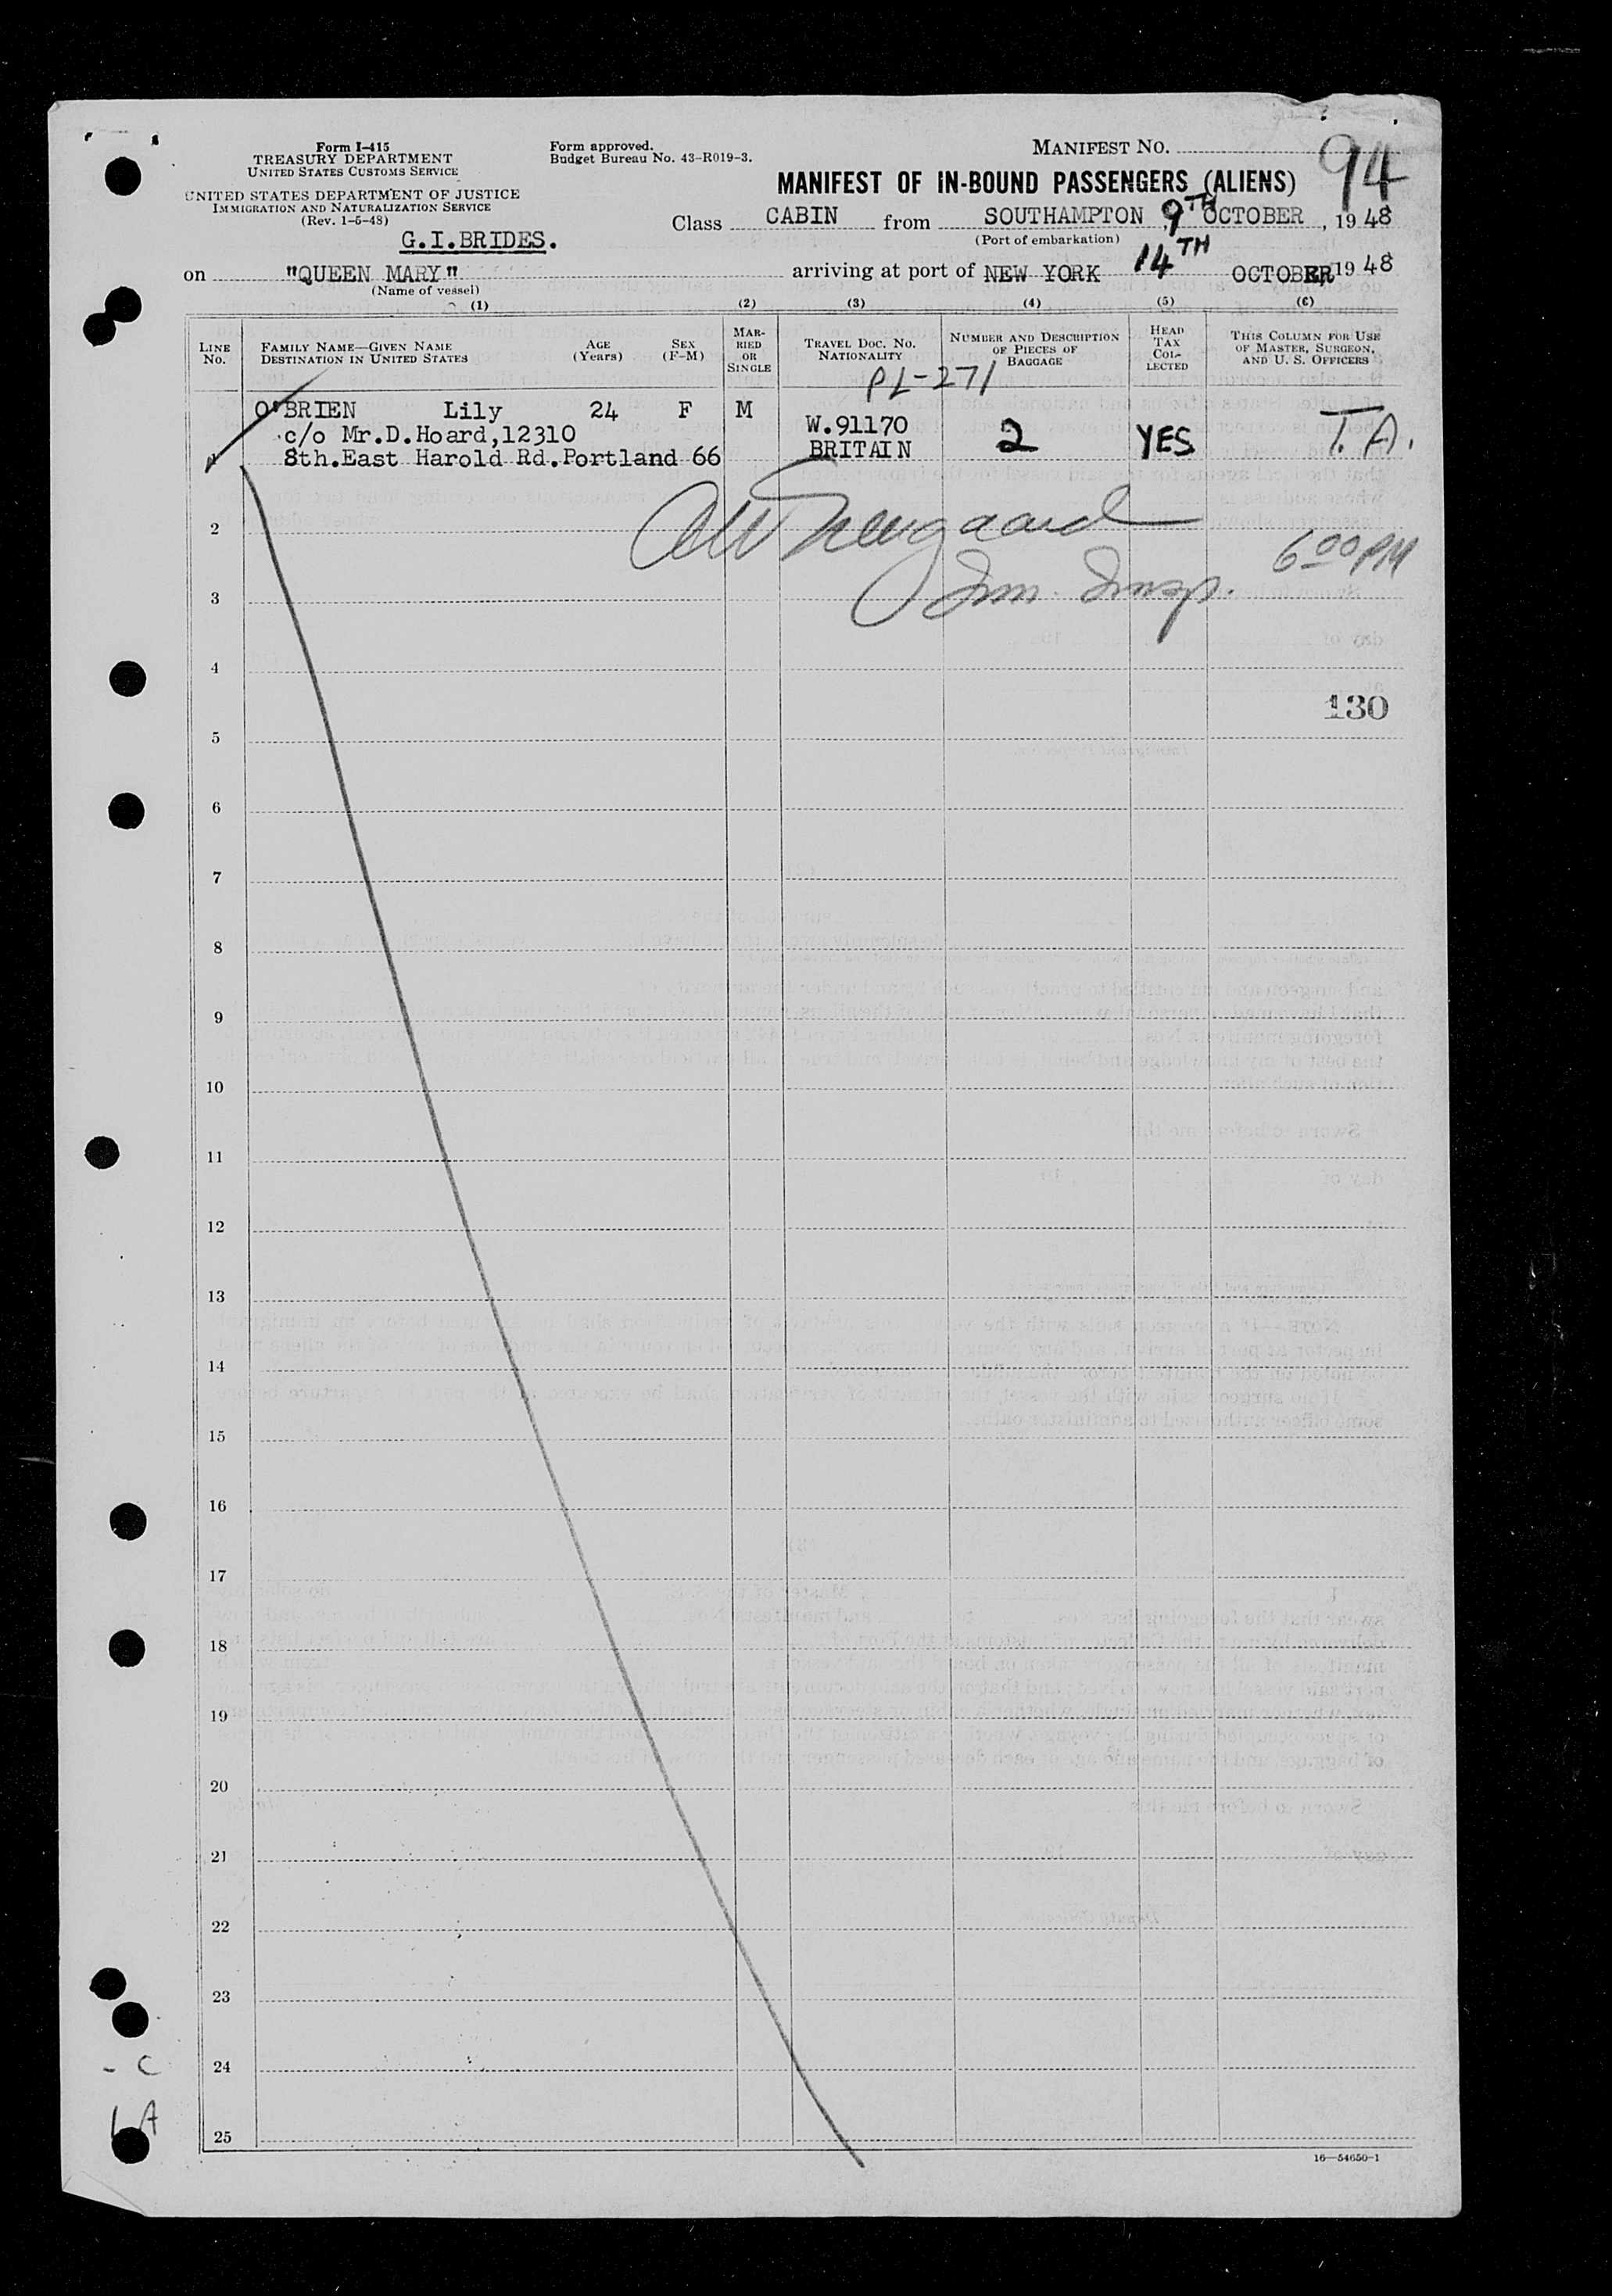 Form I-415
TREASURY DEPARTMENT
UNITED STATES CUSTOMS SERVICE
UNITED STATES DEPARTMENT OF JUSTICE
IMMIGRATION AND NATURALIZATION SERVICE
(Rev. 1-5-48)
Form approved.
Budget Bureau No. 43-R019-3.
MANIFEST NO.
94
MANIFEST OF IN-BOUND PASSENGERS (ALIENS)
Class CABIN from SOUTHAMPTON, 9TH OCTOBER, 1948
(Port of embarkation)
G.I.BRIDES.
on "QUEEN MARY" arriving at port of NEW YORK 14TH OCTOBER, 1948
(Name of vessel)
(1) (2) (3) (4) (5) (6)
LINE No.
FAMILY NAME—GIVEN NAME
DESTINATION IN UNITED STATES
AGE (Years)
SEX (F-M)
MARRIED OR SINGLE
TRAVEL DOC. NO.
NATIONALITY
NUMBER AND DESCRIPTION OF PIECES OF BAGGAGE
HEAD TAX COLLECTED
THIS COLUMN FOR USE OF MASTER, SURGEON, AND U. S. OFFICERS
PL-271
O'BRIEN Lily 24 F M
c/o Mr.D.Hoard,12310
8th.East Harold Rd.Portland 66
W.91170
BRITAIN
2
YES
T.A.
6 00 PM
Imm. Insp.
130
2
3
4
5
6
7
8
9
10
11
12
13
14
15
16
17
18
19
20
21
22
23
24
25
- C
A
16—54650-1